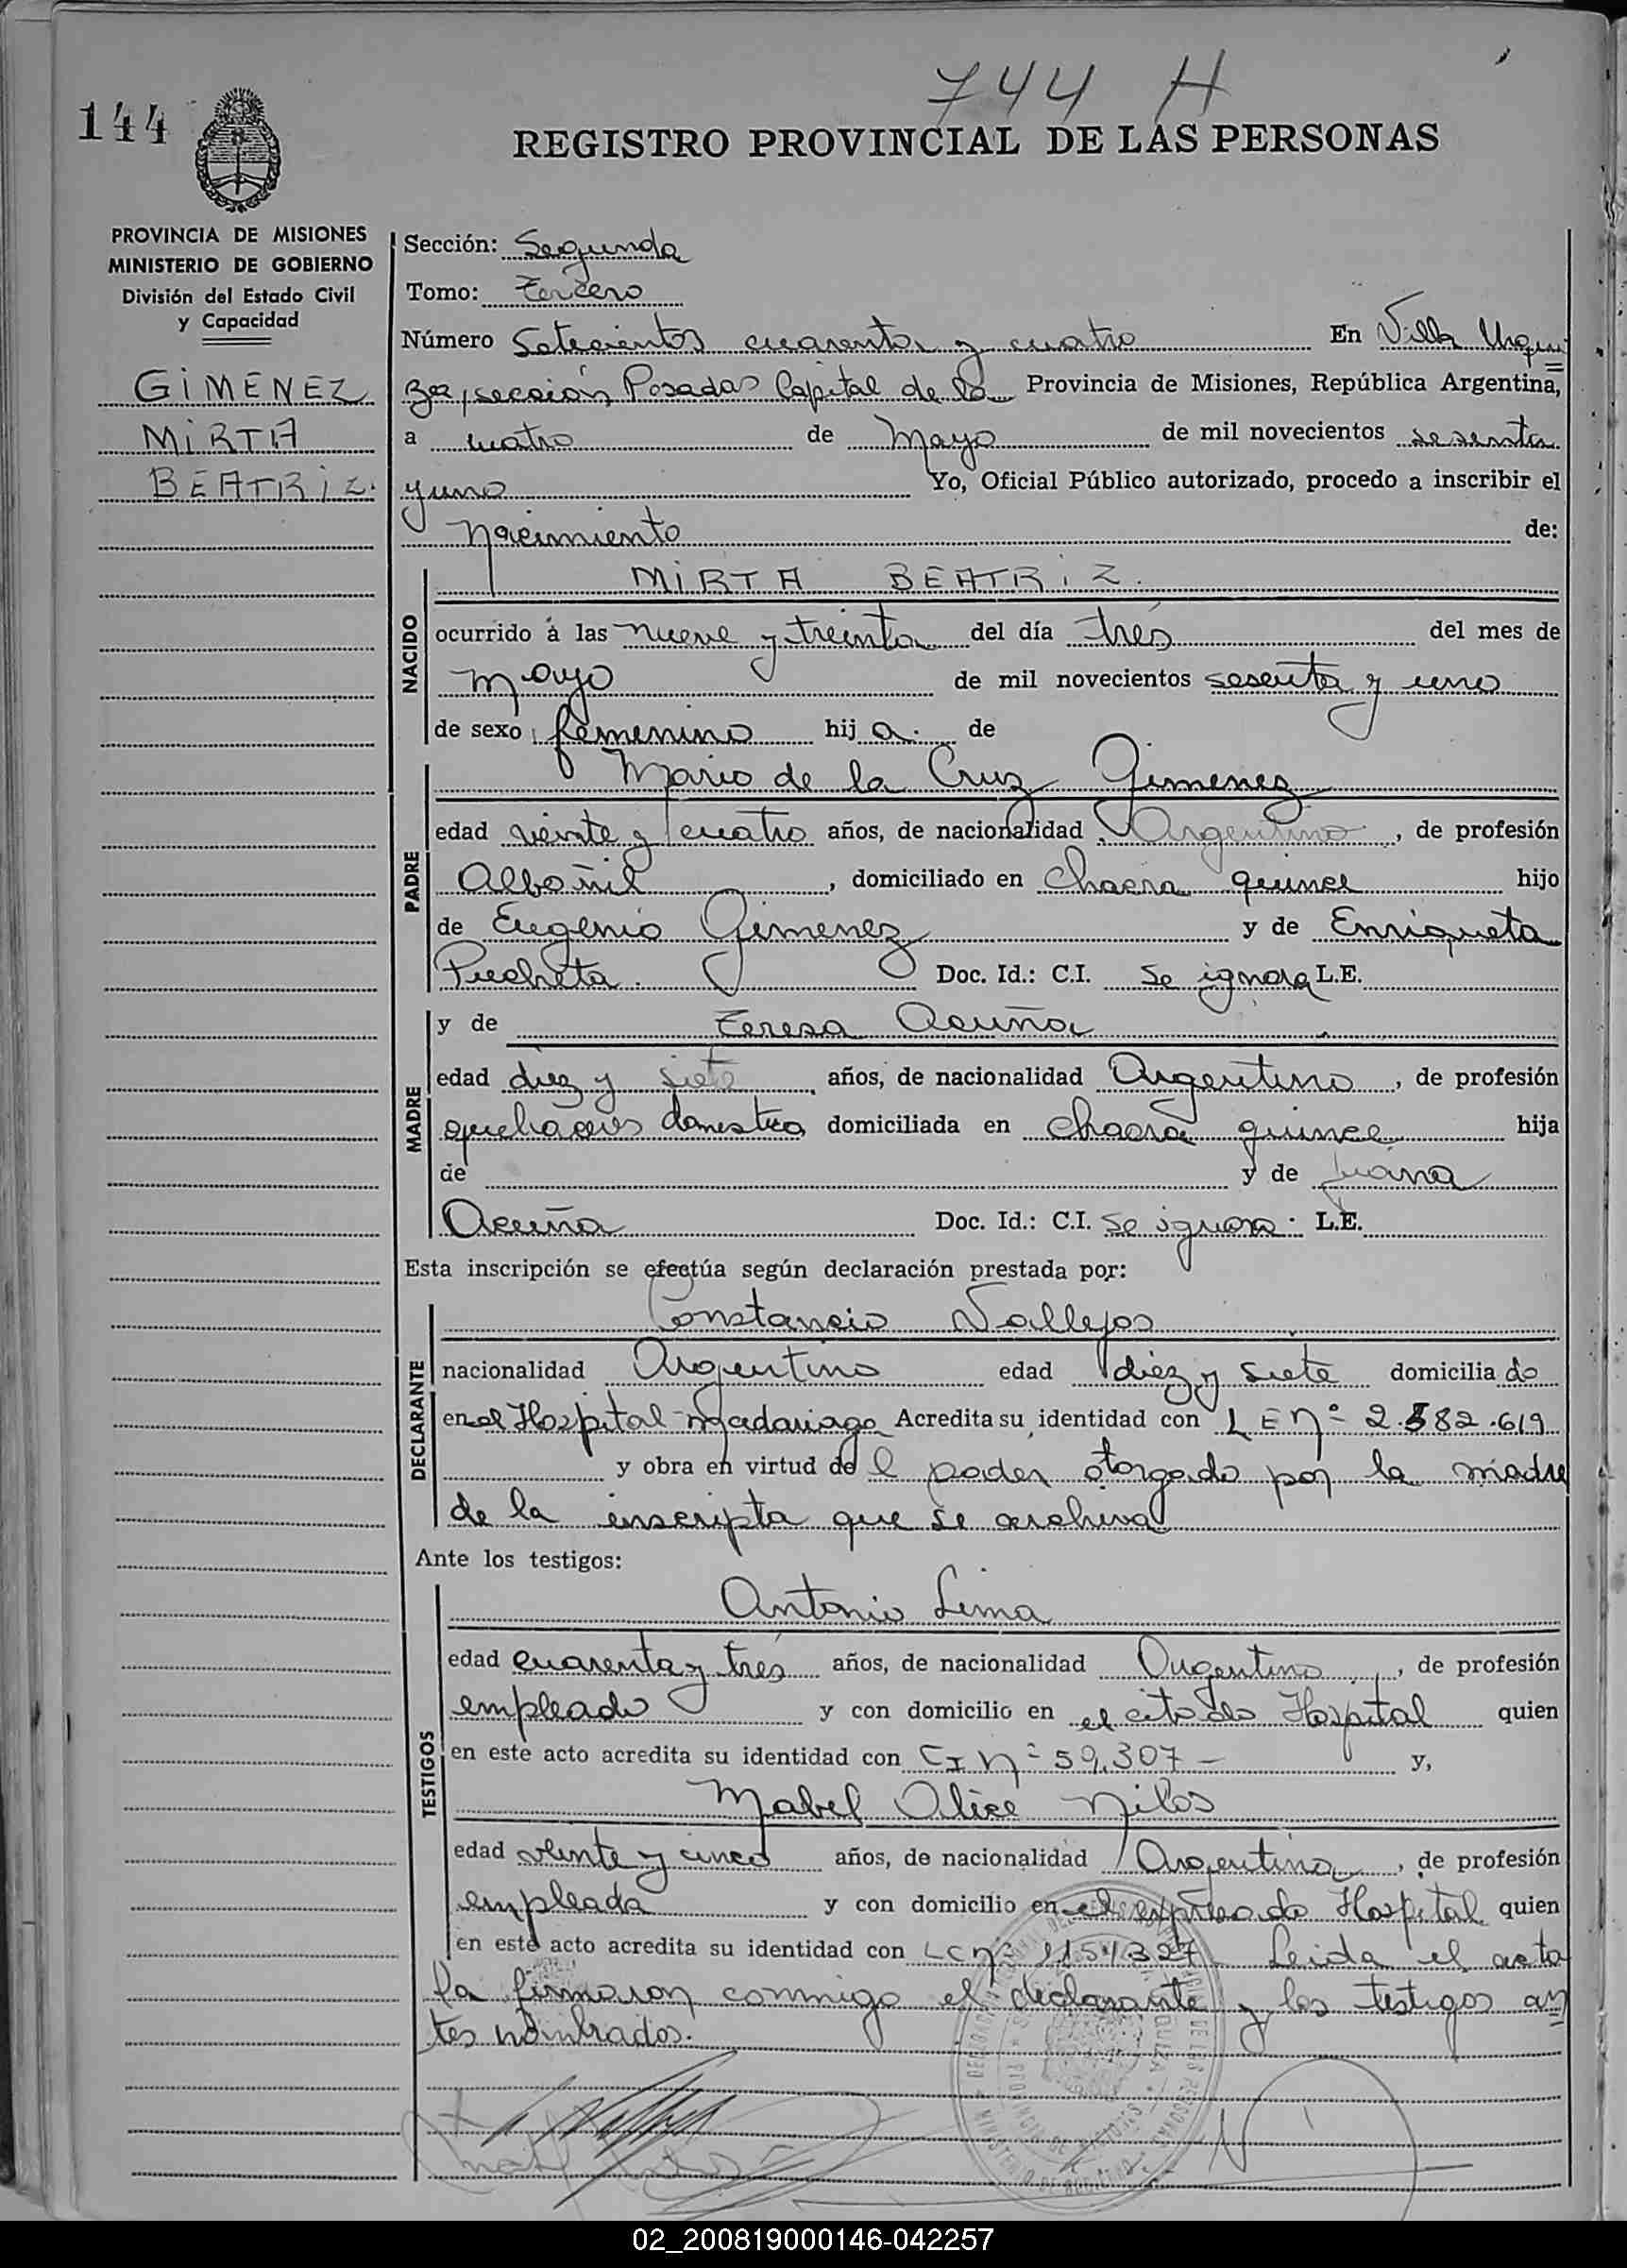 744 H
144
REGISTRO PROVINCIAL DE LAS PERSONAS
PROVINCIA DE MISIONES
MINISTERIO DE GOBIERNO
División del Estado Civil
y Capacidad
GIMENEZ
MIRTA
BEATRIZ.
Sección: Segunda
Tomo: Tercero
Número Setecientos cuarenta y cuatro En Villa Urqui
za, sección Posadas Capital de la Provincia de Misiones, República Argentina,
a cuatro de Mayo de mil novecientos sesenta
y uno Yo, Oficial Público autorizado, procedo a inscribir el
Nacimiento de:
NACIDO
MIRTA BEATRIZ.
ocurrido á las nueve y treinta del día trés del mes de
mayo de mil novecientos sesenta y uno
de sexo femenino hij a. de
PADRE
Mario de la Cruz Gimenez
edad veinte y cuatro años, de nacionalidad Argentino, de profesión
Albañil, domiciliado en Chacra quince hijo
de Eugenio Gimenez y de Enriqueta
Pucheta. Doc. Id.: C.I. Se ignora L.E.
MADRE
y de Teresa Acuña
edad diez y siete años, de nacionalidad Argentina, de profesión
quehaceres domestica domiciliada en Chacra quince hija
de y de Juana
Acuña Doc. Id.: C.I. Se ignora. L.E.
Esta inscripción se efectúa según declaración prestada por:
DECLARANTE
Constancio Vallejos
nacionalidad Argentino edad diez y siete domicilia do
en el Hospital Madariaga Acredita su identidad con L E Nº 2.582.619
y obra en virtud de l poder otorgado por la madre
de la inscripta que se archiva
Ante los testigos:
TESTIGOS
Antonio Lima
edad cuarenta y trés años, de nacionalidad Argentino, de profesión
empleado y con domicilio en el citado Hospital quien
en este acto acredita su identidad con C I Nº 59.307 — y,
Mabel Alice
edad veinte y cinco años, de nacionalidad Argentina, de profesión
empleada y con domicilio en el expresado Hospital quien
en este acto acredita su identidad con L C Nº Leida el acta
la firmaron conmigo el declarante y los testigos an
tes nombrados.
02_200819000146-042257